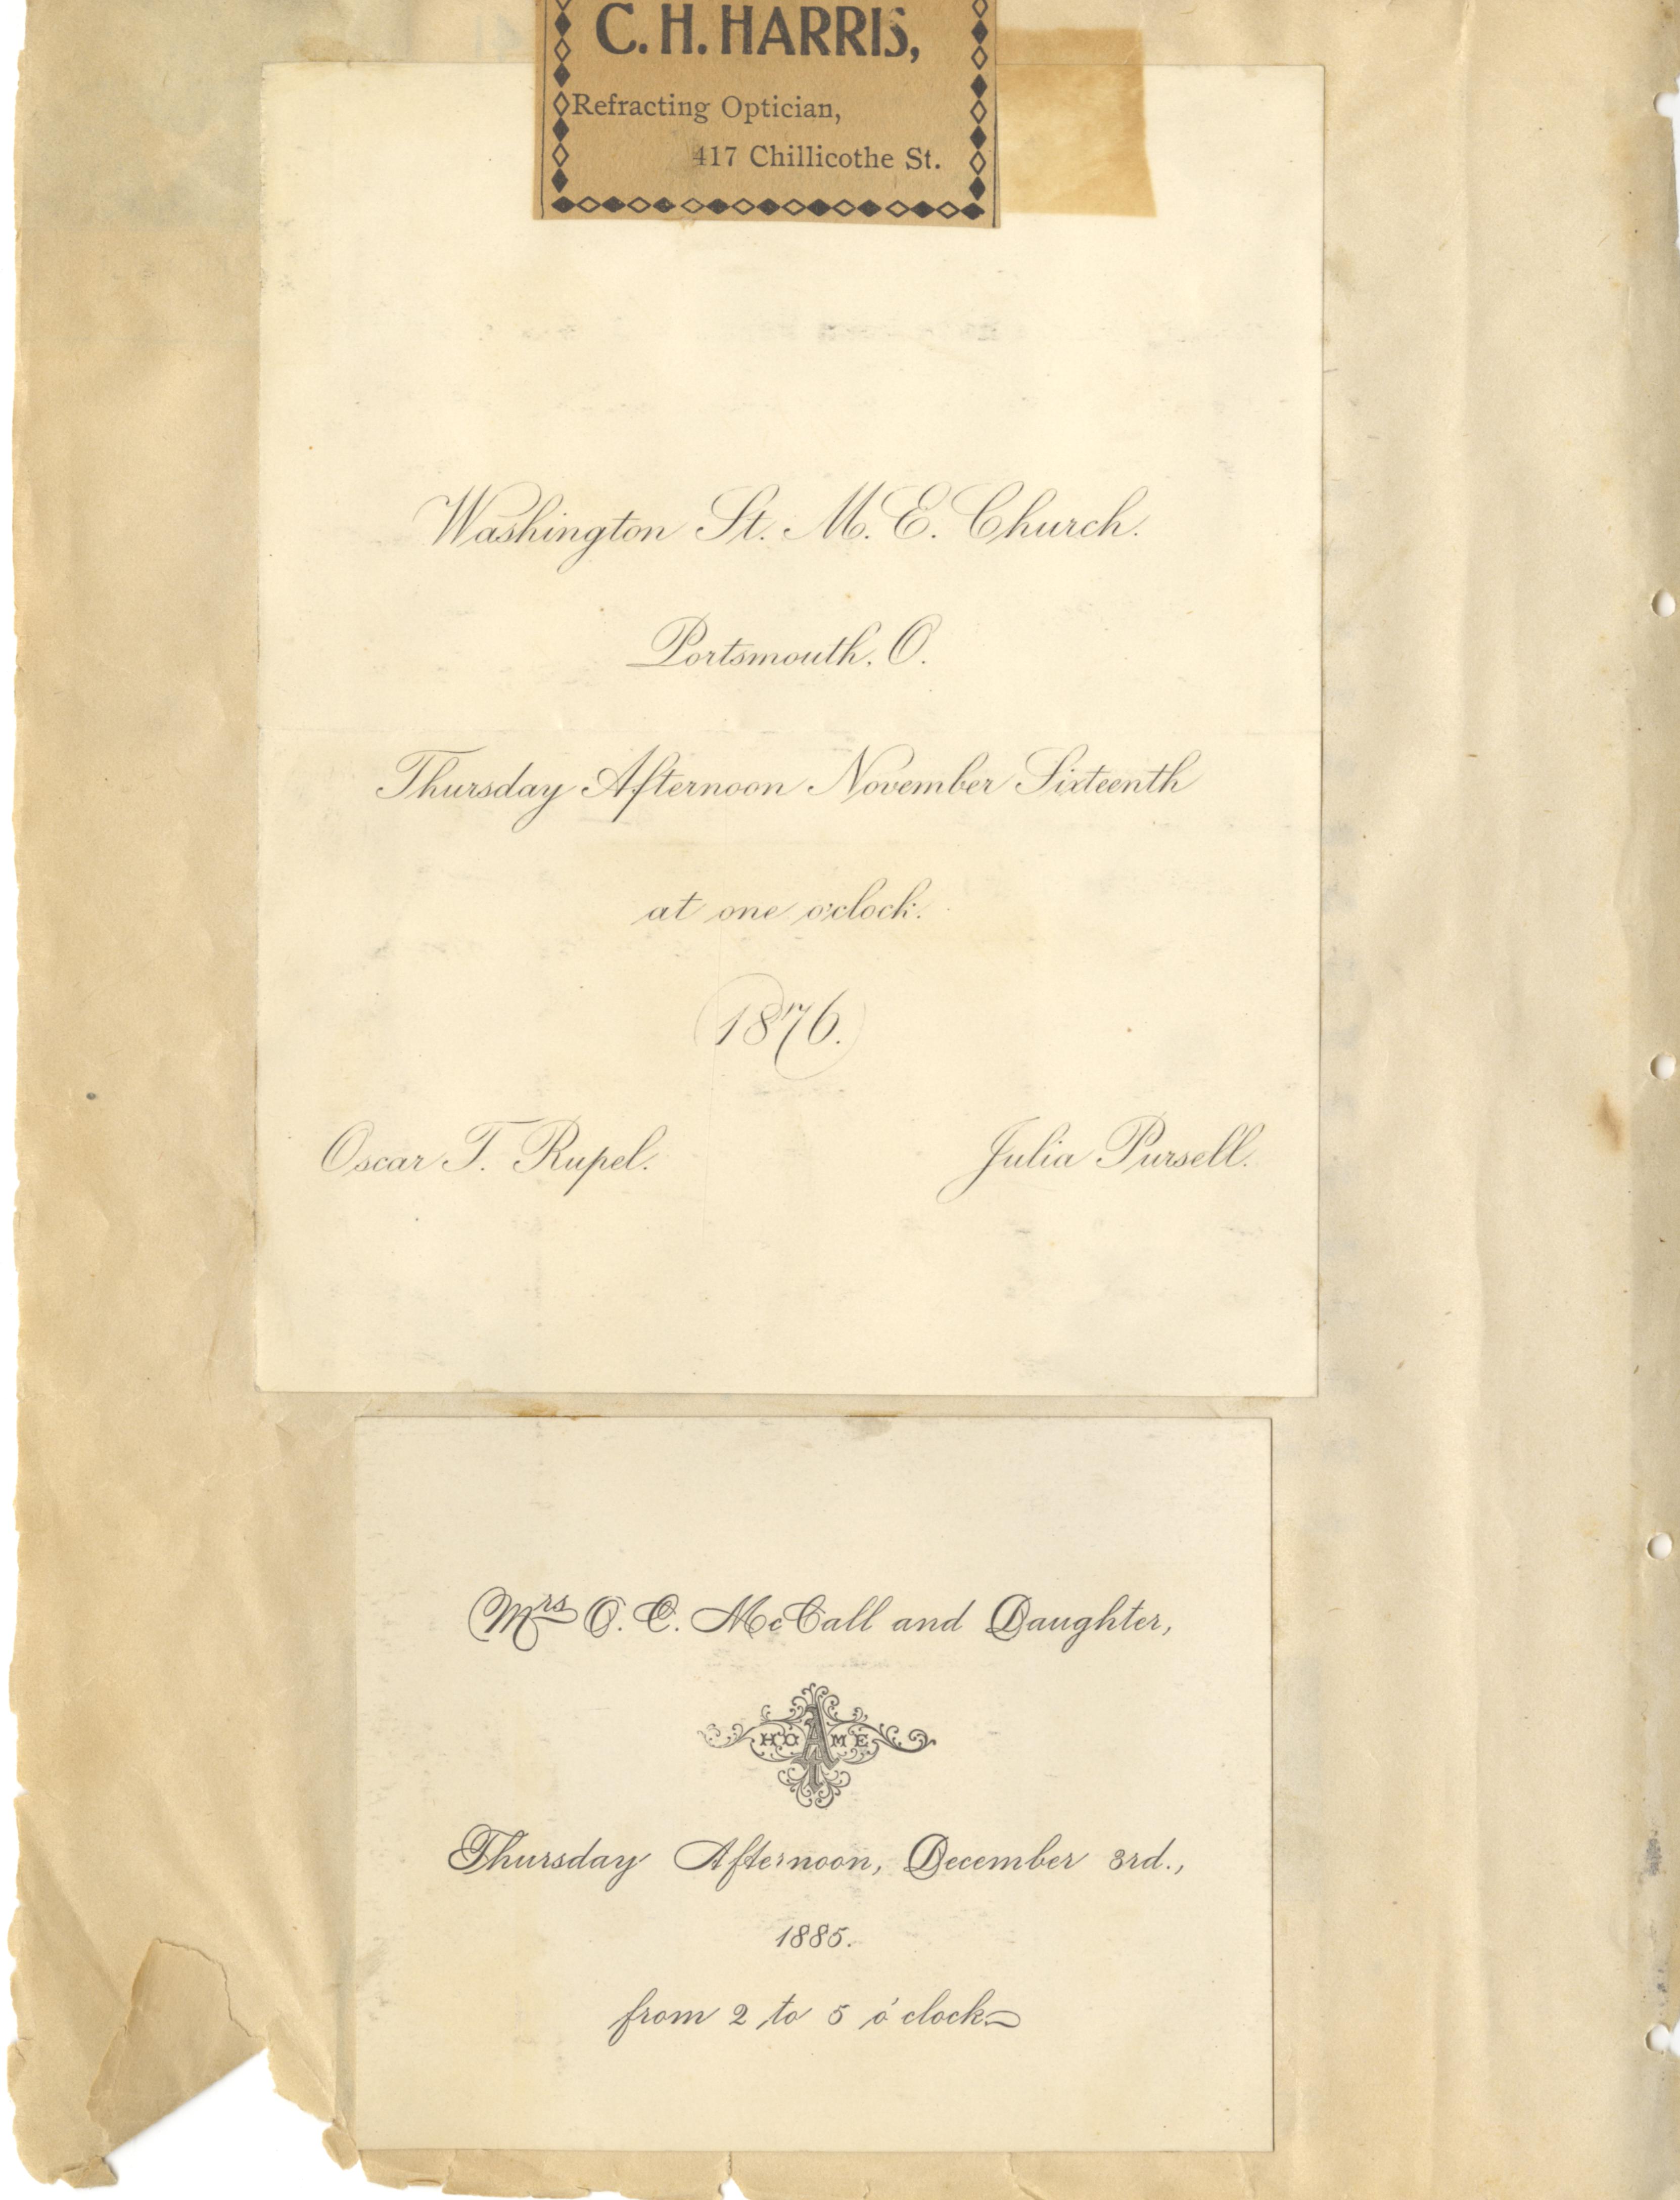 C. H. HARRIS,
Refracting Optician,
417 Chillicothe St.
Washington St. M. E. Church.
Portsmouth, O.
Thursday Afternoon November Sixteenth
at one o'clock.
1876.
Oscar T. Rupel. Julia Pursell.
Mrs O. E. McCall and Daughter,
AT HOME
Thursday Afternoon, December 3rd.,
1885.
from 2 to 5 o'clock